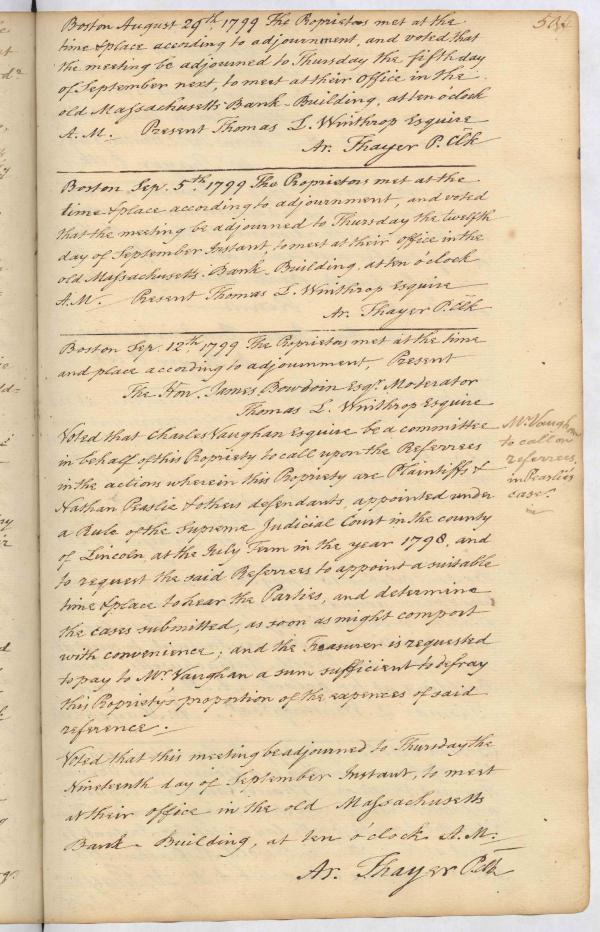 Boston August 29th. 1799 The Proprietors met at the
time & place acording to adjournment, and voted that
the meeting be adjourned to Thursday the fifth day
of September next, to meet at their Office in the
old Massachusetts Bank-Building, at ten o'clock
A.M. Present Thomas L. Winthrop Esquire
Ar. Thayer P. Clk
Boston Sep. 5th. 1799 The Proprietors met at the
time & place according to adjournment, and voted
that the meeting be adjourned to Thursday the twelfth
day of September Instant, to meet at their office in the
old Massachusetts-Bank-Building, at ten o'clock
A.M. Present Thomas L. Winthrop Esquire
Ar. Thayer P. Clk
Boston Sep. 12th. 1799 The Proprietors met at the time
and place according to adjournment, Present
The Hon. James Bowdoin Esqr. Moderator
Thomas L. Winthrop Esquire
Voted that Charles Vaughan Esquire be a committee
in behalf of this Propriety to call upon the Referrees
in the actions wherein this Propriety are Plaintiffs &
Nathan Peaslie & others defendants, appointed under
a Rule of the Supreme Judicial Court in the county
of Lincoln at the July Term in the year 1798, and
to request the said Referrees to appoint a suitable
time & place to hear the Parties, and determine
the cases submitted, as soon as might comport
with convenience; and the Treasurer is requested
to pay to Mr. Vaughan a sum sufficient to defray
this Propriety's proportion of the expences of said
reference.
Mr. Vaughan
to call on
referrees
in Pearlie's
case.
Voted that this meeting be adjourned to Thursday the
Nineteenth day of September Instant, to meet
at their office in the old Massachusetts
Bank-Building, at ten o'clock A.M.
Ar. Thayer P. Clk